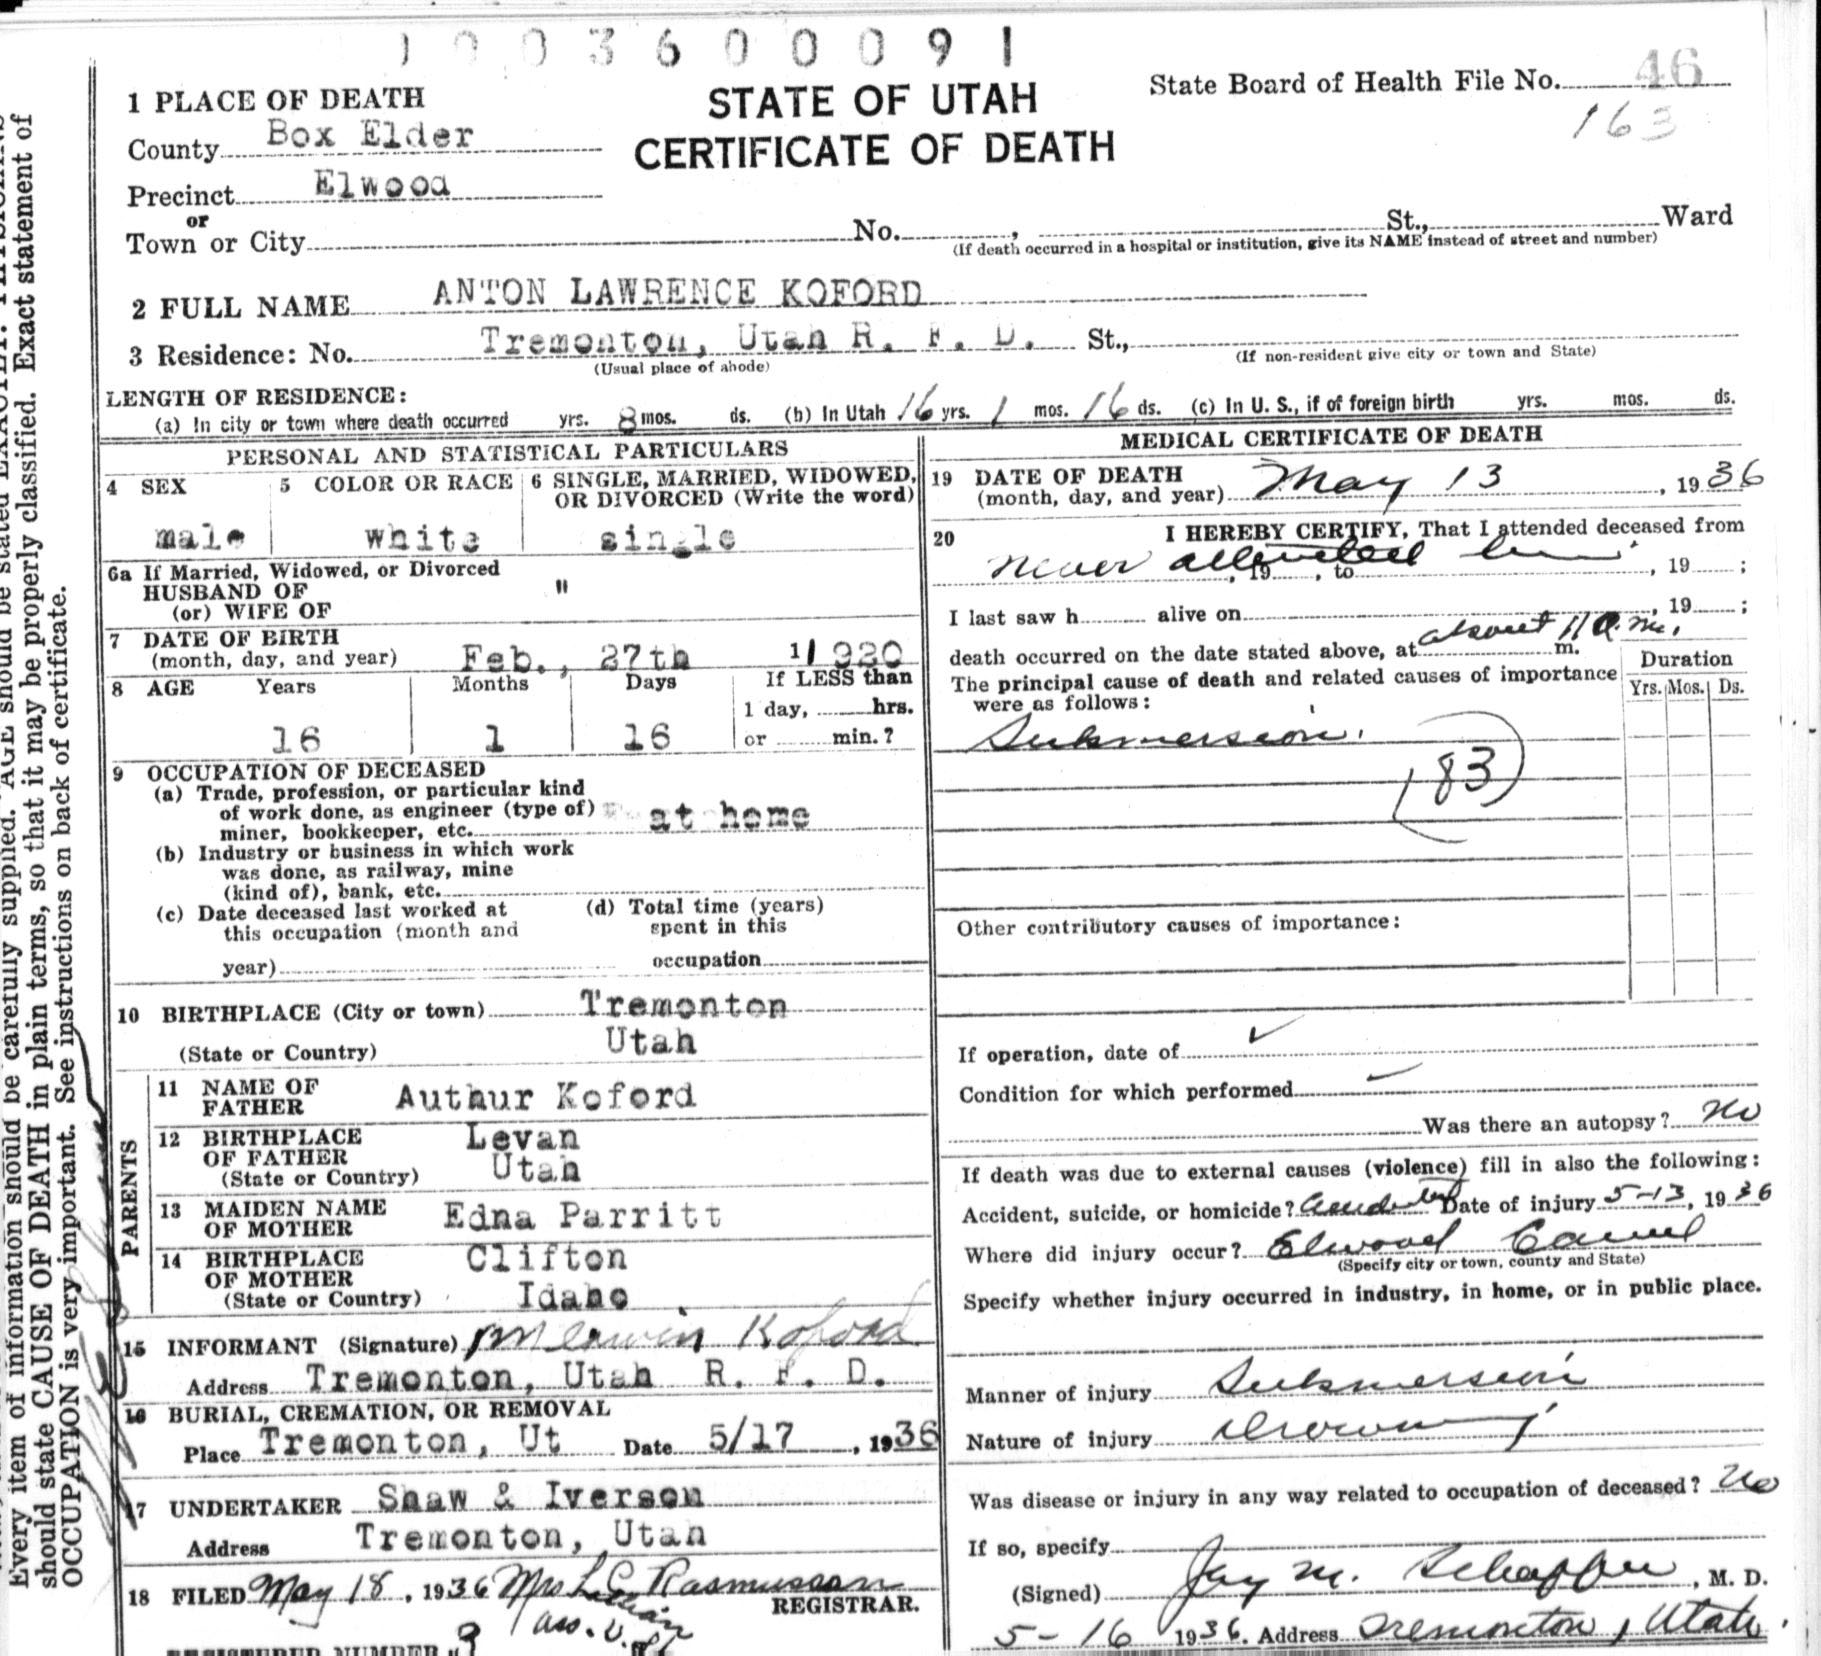 1 0 0 3 6 0 0 0 9 1
1 PLACE OF DEATH
County Box Elder
Precinct Elwood
or
Town or City No. , St., Ward
STATE OF UTAH
CERTIFICATE OF DEATH
State Board of Health File No. 46
163
(If death occurred in a hospital or institution, give its NAME instead of street and number)
2 FULL NAME ANTON LAWRENCE KOFORD
3 Residence: No. Tremonton, Utah R. F. D. St.,
(Usual place of abode) (If non-resident give city or town and State)
LENGTH OF RESIDENCE:
(a) In city or town where death occurred yrs. 8 mos. ds. (b) In Utah 16 yrs. 1 mos. 16 ds. (c) In U. S., if of foreign birth yrs. mos. ds.
PERSONAL AND STATISTICAL PARTICULARS
4 SEX 5 COLOR OR RACE 6 SINGLE, MARRIED, WIDOWED,
OR DIVORCED (Write the word)
male white single
6a If Married, Widowed, or Divorced
HUSBAND OF "
(or) WIFE OF
7 DATE OF BIRTH
(month, day, and year) Feb., 27th 1/ 920
8 AGE Years Months Days If LESS than
1 day, hrs.
16 1 16 or min.?
9 OCCUPATION OF DECEASED
(a) Trade, profession, or particular kind
of work done, as engineer (type of)
miner, bookkeeper, etc. at home
(b) Industry or business in which work
was done, as railway, mine
(kind of), bank, etc.
(c) Date deceased last worked at
this occupation (month and
year)
(d) Total time (years)
spent in this
occupation
10 BIRTHPLACE (City or town) Tremonton
(State or Country) Utah
PARENTS
11 NAME OF
FATHER Authur Koford
12 BIRTHPLACE
OF FATHER
(State or Country) Levan
Utah
13 MAIDEN NAME
OF MOTHER Edna Parritt
14 BIRTHPLACE
OF MOTHER
(State or Country) Clifton
Idaho
15 INFORMANT (Signature) Merwin Koford
Address Tremonton, Utah R. F. D.
16 BURIAL, CREMATION, OR REMOVAL
Place Tremonton, Ut Date 5/17, 1936
17 UNDERTAKER Shaw & Iverson
Address Tremonton, Utah
18 FILED May 18, 1936 Mrs L C Rasmussen
REGISTRAR.
REGISTERED NUMBER 9
MEDICAL CERTIFICATE OF DEATH
19 DATE OF DEATH
(month, day, and year) May 13, 1936
20 I HEREBY CERTIFY, That I attended deceased from
never attended him, 19 , to , 19 ;
I last saw h alive on , 19 ;
death occurred on the date stated above, at about 11 a.m. m.
The principal cause of death and related causes of importance
were as follows:
Duration
Yrs. Mos. Ds.
Submersion.
183
Other contributory causes of importance:
If operation, date of ✓
Condition for which performed ✓
Was there an autopsy? No
If death was due to external causes (violence) fill in also the following:
Accident, suicide, or homicide? Accident Date of injury 5-13, 1936
Where did injury occur? Elwood Canal
(Specify city or town, county and State)
Specify whether injury occurred in industry, in home, or in public place.
Manner of injury Submersion
Nature of injury Drowning
Was disease or injury in any way related to occupation of deceased? No
If so, specify
(Signed) Jay M. Schaffer, M. D.
5-16 1936. Address Tremonton, Utah.
Every item of information should be carefully supplied. AGE should be stated EXACTLY. PHYSICIANS
should state CAUSE OF DEATH in plain terms, so that it may be properly classified. Exact statement of
OCCUPATION is very important. See instructions on back of certificate.